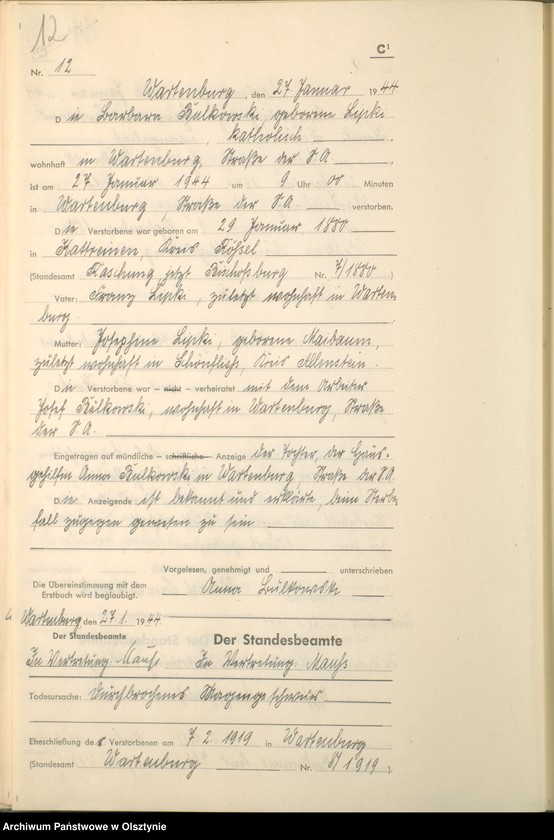 12
C¹
Nr. 12
Wartenburg, den 27 Januar 1944
Die Barbara Bulkowski, geborene Lipki
katholisch
wohnhaft in Wartenburg, Straße der S.A.
ist am 27 Januar 1944 um 9 Uhr 00 Minuten
in Wartenburg, Straße der S.A. verstorben.
Die Verstorbene war geboren am 29. Januar 1880
in Kattreinen, Kreis Rößel
(Standesamt jetzt Bischofsburg Nr. 7/1880)
Vater: Franz Lipki, zuletzt wohnhaft in Warten-
burg.
Mutter: Josephine Lipki, geborene Maibaum,
zuletzt wohnhaft in Kreis Allenstein.
Die Verstorbene war – nicht – verheiratet mit dem Arbeiter
Josef Bulkowski, wohnhaft in Wartenburg, Straße
der S.A.
Eingetragen auf mündliche – schriftliche – Anzeige der Tochter, der Haus-
gehilfin Anna Bulkowski in Wartenburg, Straße der S.A.
Die Anzeigende ist bekannt und erklärte, beim Sterbe-
fall zugegen gewesen zu sein.
Vorgelesen, genehmigt und unterschrieben
Die Übereinstimmung mit dem
Erstbuch wird beglaubigt.
Anna Bulkowski
Wartenburg, den 27.1. 1944
Der Standesbeamte
Der Standesbeamte
In Vertretung:
In Vertretung:
Todesursache: Durchbrochenes Magengeschwür
Eheschließung der Verstorbenen am 7.2.1919 in Wartenburg
(Standesamt Wartenburg Nr. 8/1919).
Archiwum Państwowe w Olsztynie